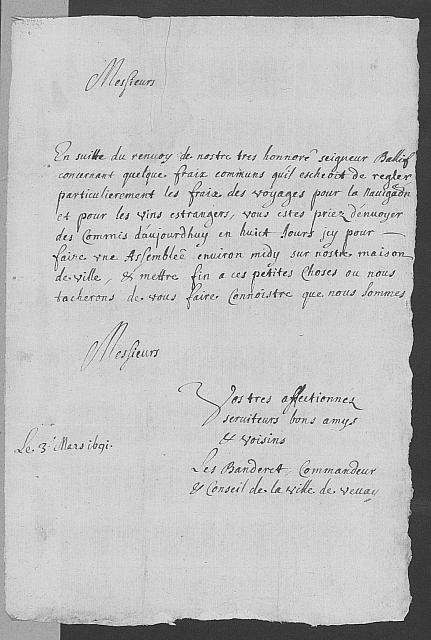 Messieurs
En suitte du renvoy de nostre tres honnoré seigneur Ballif
concernant quelque fraix communs qu'il escheoit de regler
particulierement les fraix des voyages pour la Navigaõn
et pour les vins estrangers, vous estes priez d'envoyer
des Commis d'aujourdhuy en huict Jours icy pour
faire vne Assemblée environ midy sur nostre maison
de ville, & mettre fin a ces petites Choses ou nous
tacherons de vous faire Connoistre que nous sommes
Messieurs
Vostres affectionnez
serviteurs bons amys
& voisins
Le 3.e Mars 1691.
Les Banderet, Commandeur
& Conseil de la ville de Vevay